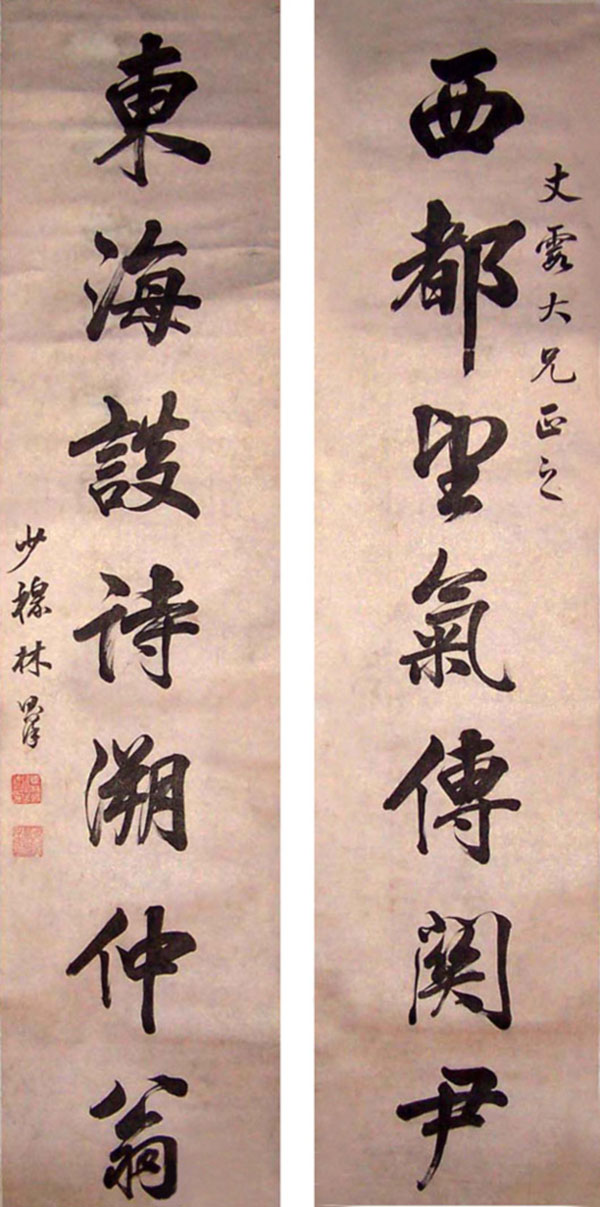 西都望氣傳關尹
大兄正之
東海談詩溯仲翁
少穆林則徐